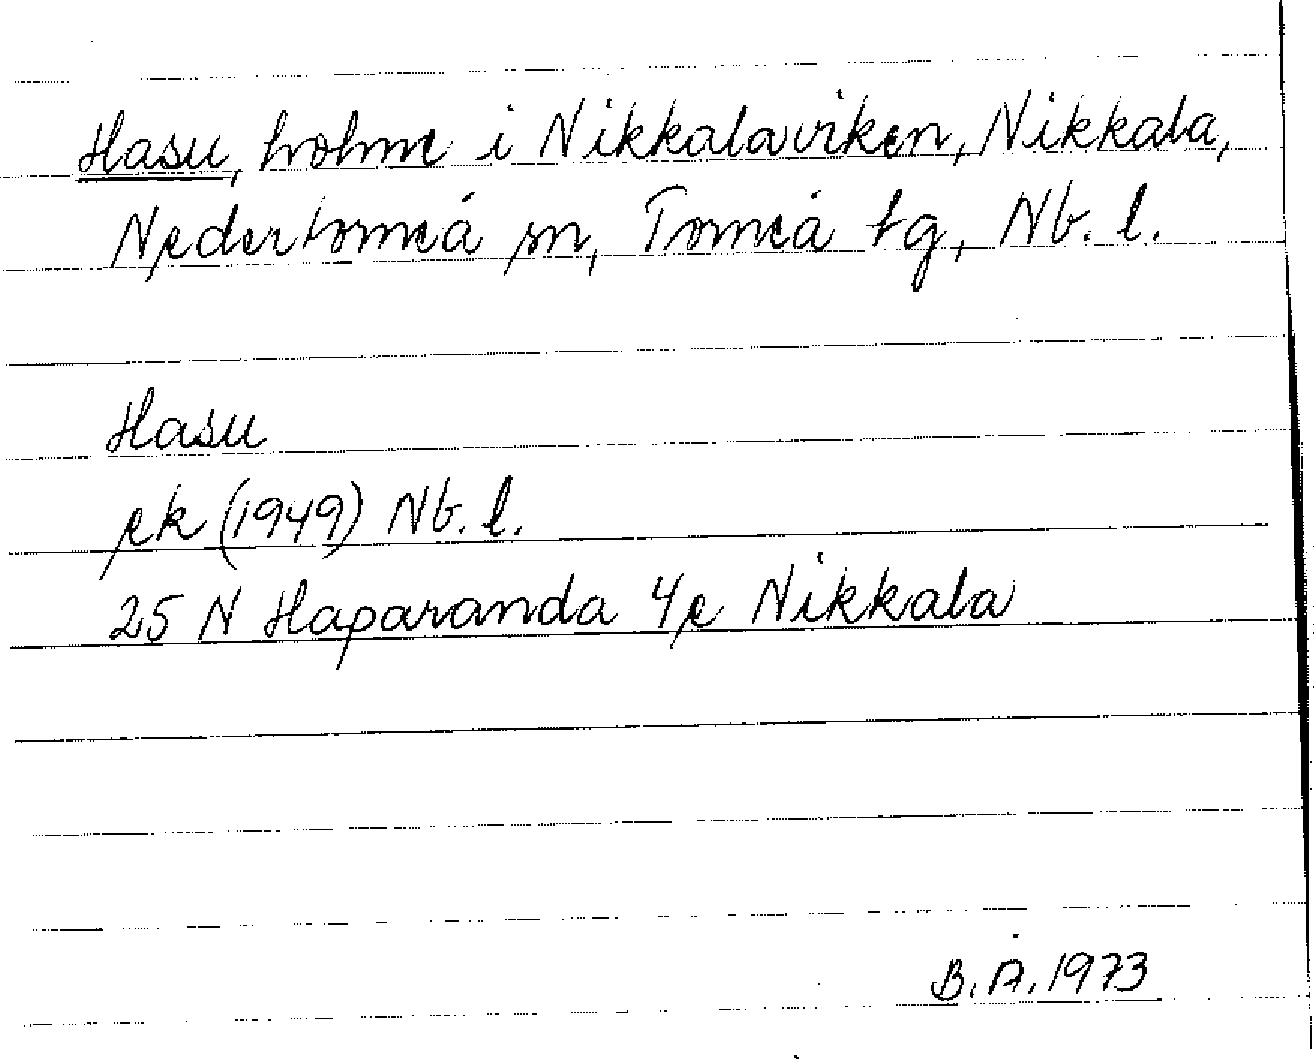 Hasu, holme i Nikkalaviken, Nikkala,
Nedertorneå sn, Torneå tg, Nb. l.
Hasu
ek (1949) Nb. l.
25 N Haparanda 4e Nikkala
B. Å. 1973